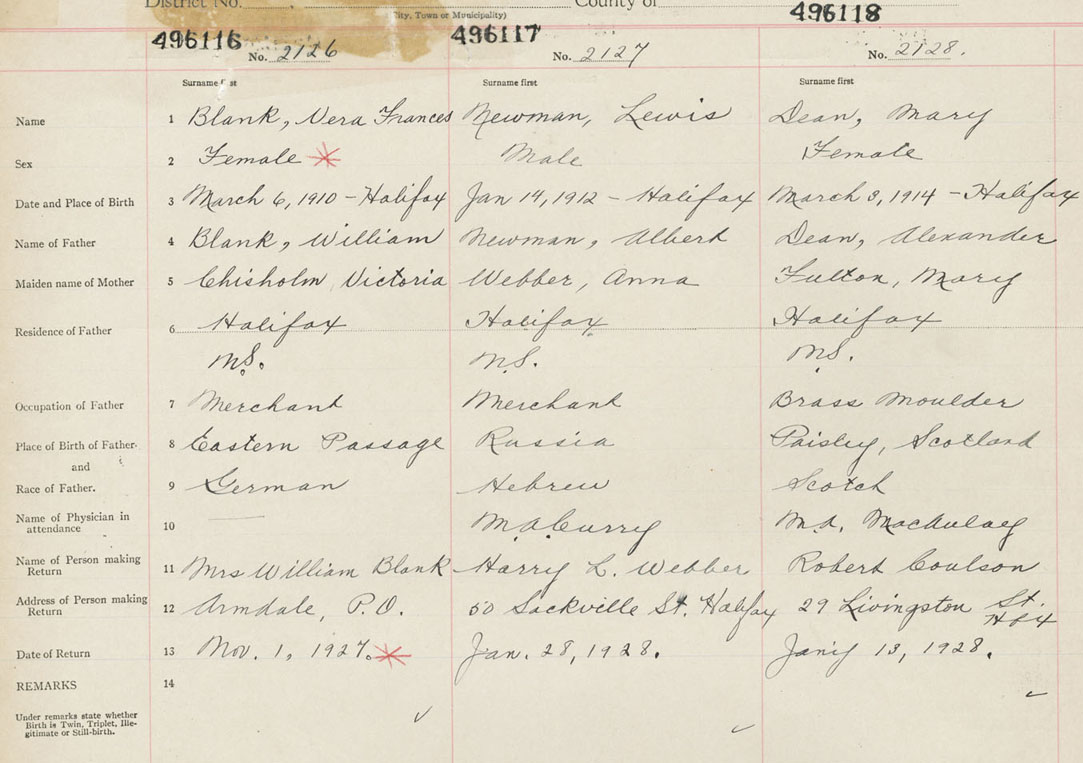 District No.
County of
(City, Town or Municipality)
496116 496117 496118
No. 2126 No. 2127 No. 2128.
Surname first Surname first Surname first
Name 1 Blank, Vera Frances Newman, Lewis Dean, Mary
Sex 2 Female Male Female
Date and Place of Birth 3 March 6, 1910 - Halifax Jan 14, 1912 - Halifax March 3, 1914 - Halifax
Name of Father 4 Blank, William Newman, Albert Dean, Alexander
Maiden name of Mother 5 Chisholm Victoria Webber, Anna Fulton, Mary
Residence of Father 6 Halifax Halifax Halifax
N.S. N.S. N.S.
Occupation of Father 7 Merchant Merchant Brass Moulder
Place of Birth of Father 8 Eastern Passage Russia Paisley, Scotland
and
Race of Father. 9 German Hebrew Scotch
Name of Physician in
attendance 10 M.A. Curry M.A. MacAulay
Name of Person making
Return 11 Mrs William Blank Harry L. Webber Robert Coulson
Address of Person making
Return 12 Armdale, P.O. 50 Sackville St. Halifax 29 Livingston St.
Hfx
Date of Return 13 Nov. 1, 1927. Jan. 28, 1928. Jan'y 13, 1928.
REMARKS 14
Under remarks state whether
Birth is Twin, Triplet, Ille-
gitimate or Still-birth.